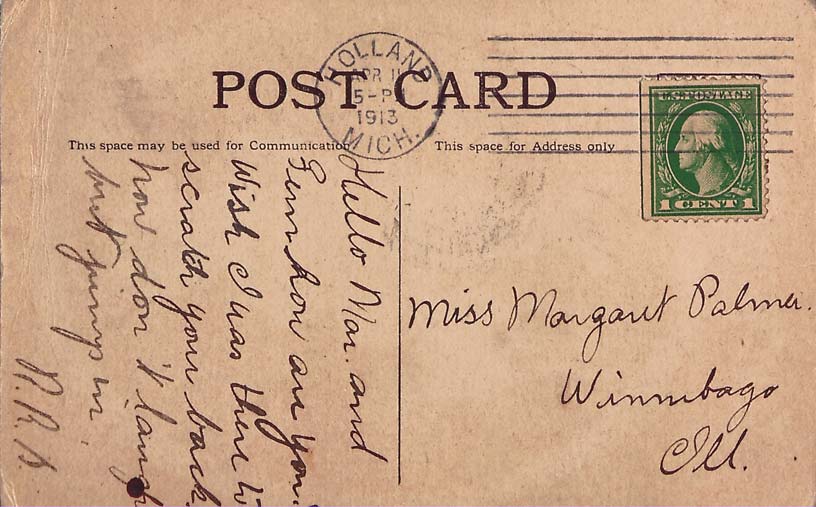 POST CARD
HOLLAND
APR 1
5-P
1913
MICH.
U.S. POSTAGE
1 CENT 1
This space may be used for Communication
This space for Address only
Hello Mar. and
Fern how are you
Wish I was there to
scratch your back.
now don't laugh
but jump in.
R.R.S.
Miss Margaret Palmer.
Winnebago
Ill.